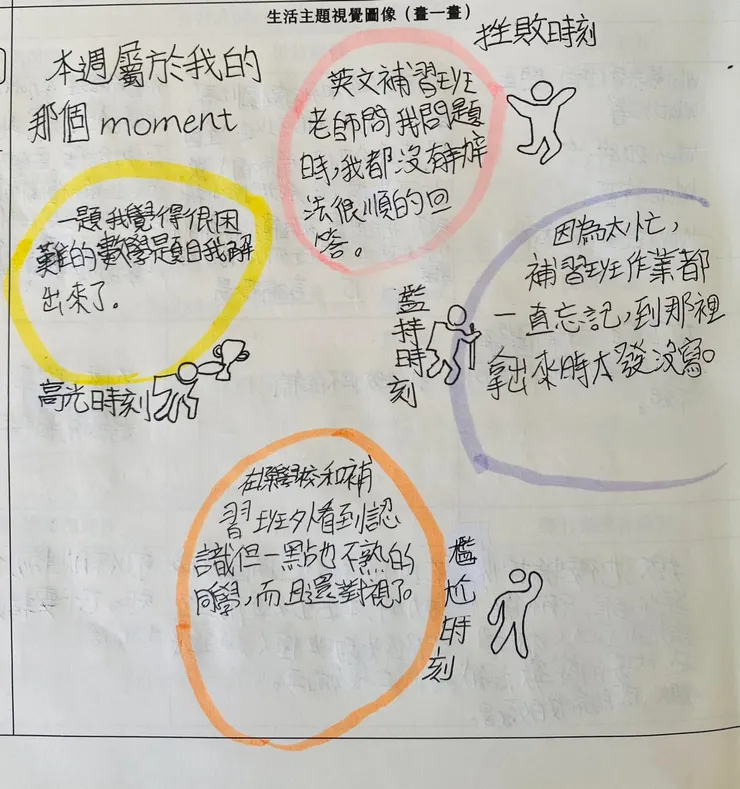 生活主題視覺圖像（畫一畫）
本週屬於我的
那個 moment
挫敗時刻
英文補習班
老師問我問題
時,我都沒有辦
法很順的回
答。
一題我覺得很困
難的數學題自我解
出來了。
高光時刻
因為太忙,
補習班作業都
一直忘記,到那裡
拿出來時才發沒寫。
持時刻
在學校和補
習班外看到認
識但一點也不熟的
同學,而且還對視了。
尷尬時刻